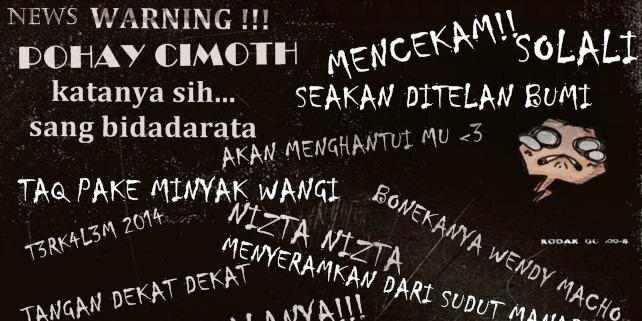 NEWS WARNING !!!
POHAY CIMOTH
katanya sih...
sang bidadarata
MENCEKAM!!
SOLALI
SEAKAN DITELAN BUMI
AKAN MENGHANTUI MU <3
TAQ PAKE MINYAK WANGI
BONEKANYA WENDY MACHO
T3RK4L3M 2014
NIZTA NIZTA
MENYERAMKAN DARI SUDUT
TANGAN DEKAT DEKAT
KODAK